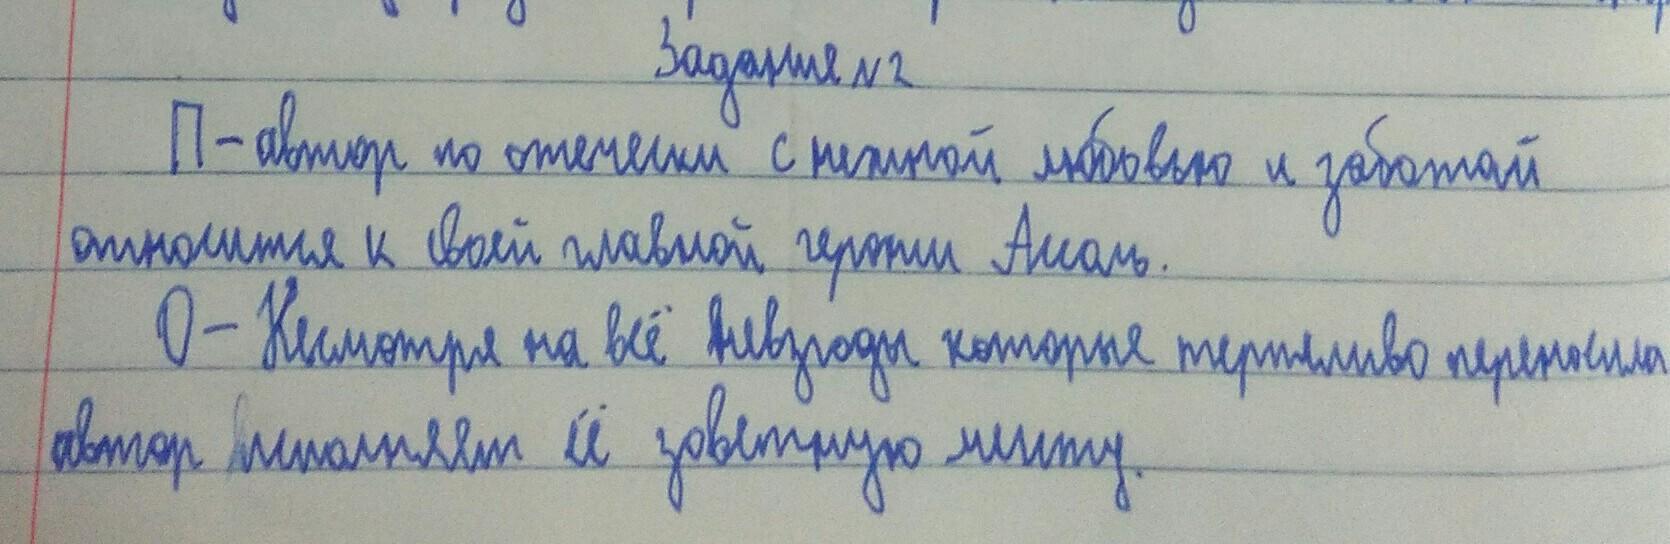 Задание N2
П-автор по отечески с нежной любовью и заботай
относится к своей главной героини Ассоль.
О- Несмотря на всё невзгоды которые терпеливо переносила
автор исполняет её зоветную мечту.